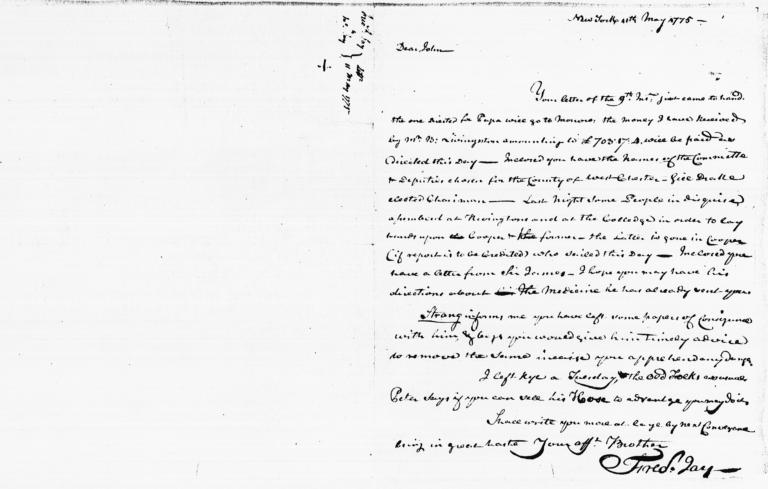 New York 11th May 1775 —
Dear John
Your letter of the 9th Inst. just came to hand.
the one directed for Papa will go to Morrow, the money I have Received
by Mr. Livingston amounting to £703.17.4. will be paid as
directed this Day — Inclosed you have the Names of the Committe
& Deputies chosen for the County of West Chester — Drake
elected Chairman — Last Night some People in disguise
assembled at Rivingtons and at the Colledge in order to lay
hands upon Cooper & the former — the Latter is gone in Cooper
(if report is to be Credited) who sailed this Day — Inclosed you
have a letter from Sir James — I hope you may have his
directions about the Medicine he has already sent you
Strang informs me you have left some papers of Consequence
with him, & begs you would give him timely advice
to remove the same incase you apprehend any danger
I left Rye a Tuesday, the Old Folks as usual
Peter says if you can sell his Horse to advantage you may do it.
I shall write you more at large by next Conveyance
being in great haste Your afft. Brother
Fredk. Jay —
11 May 1775